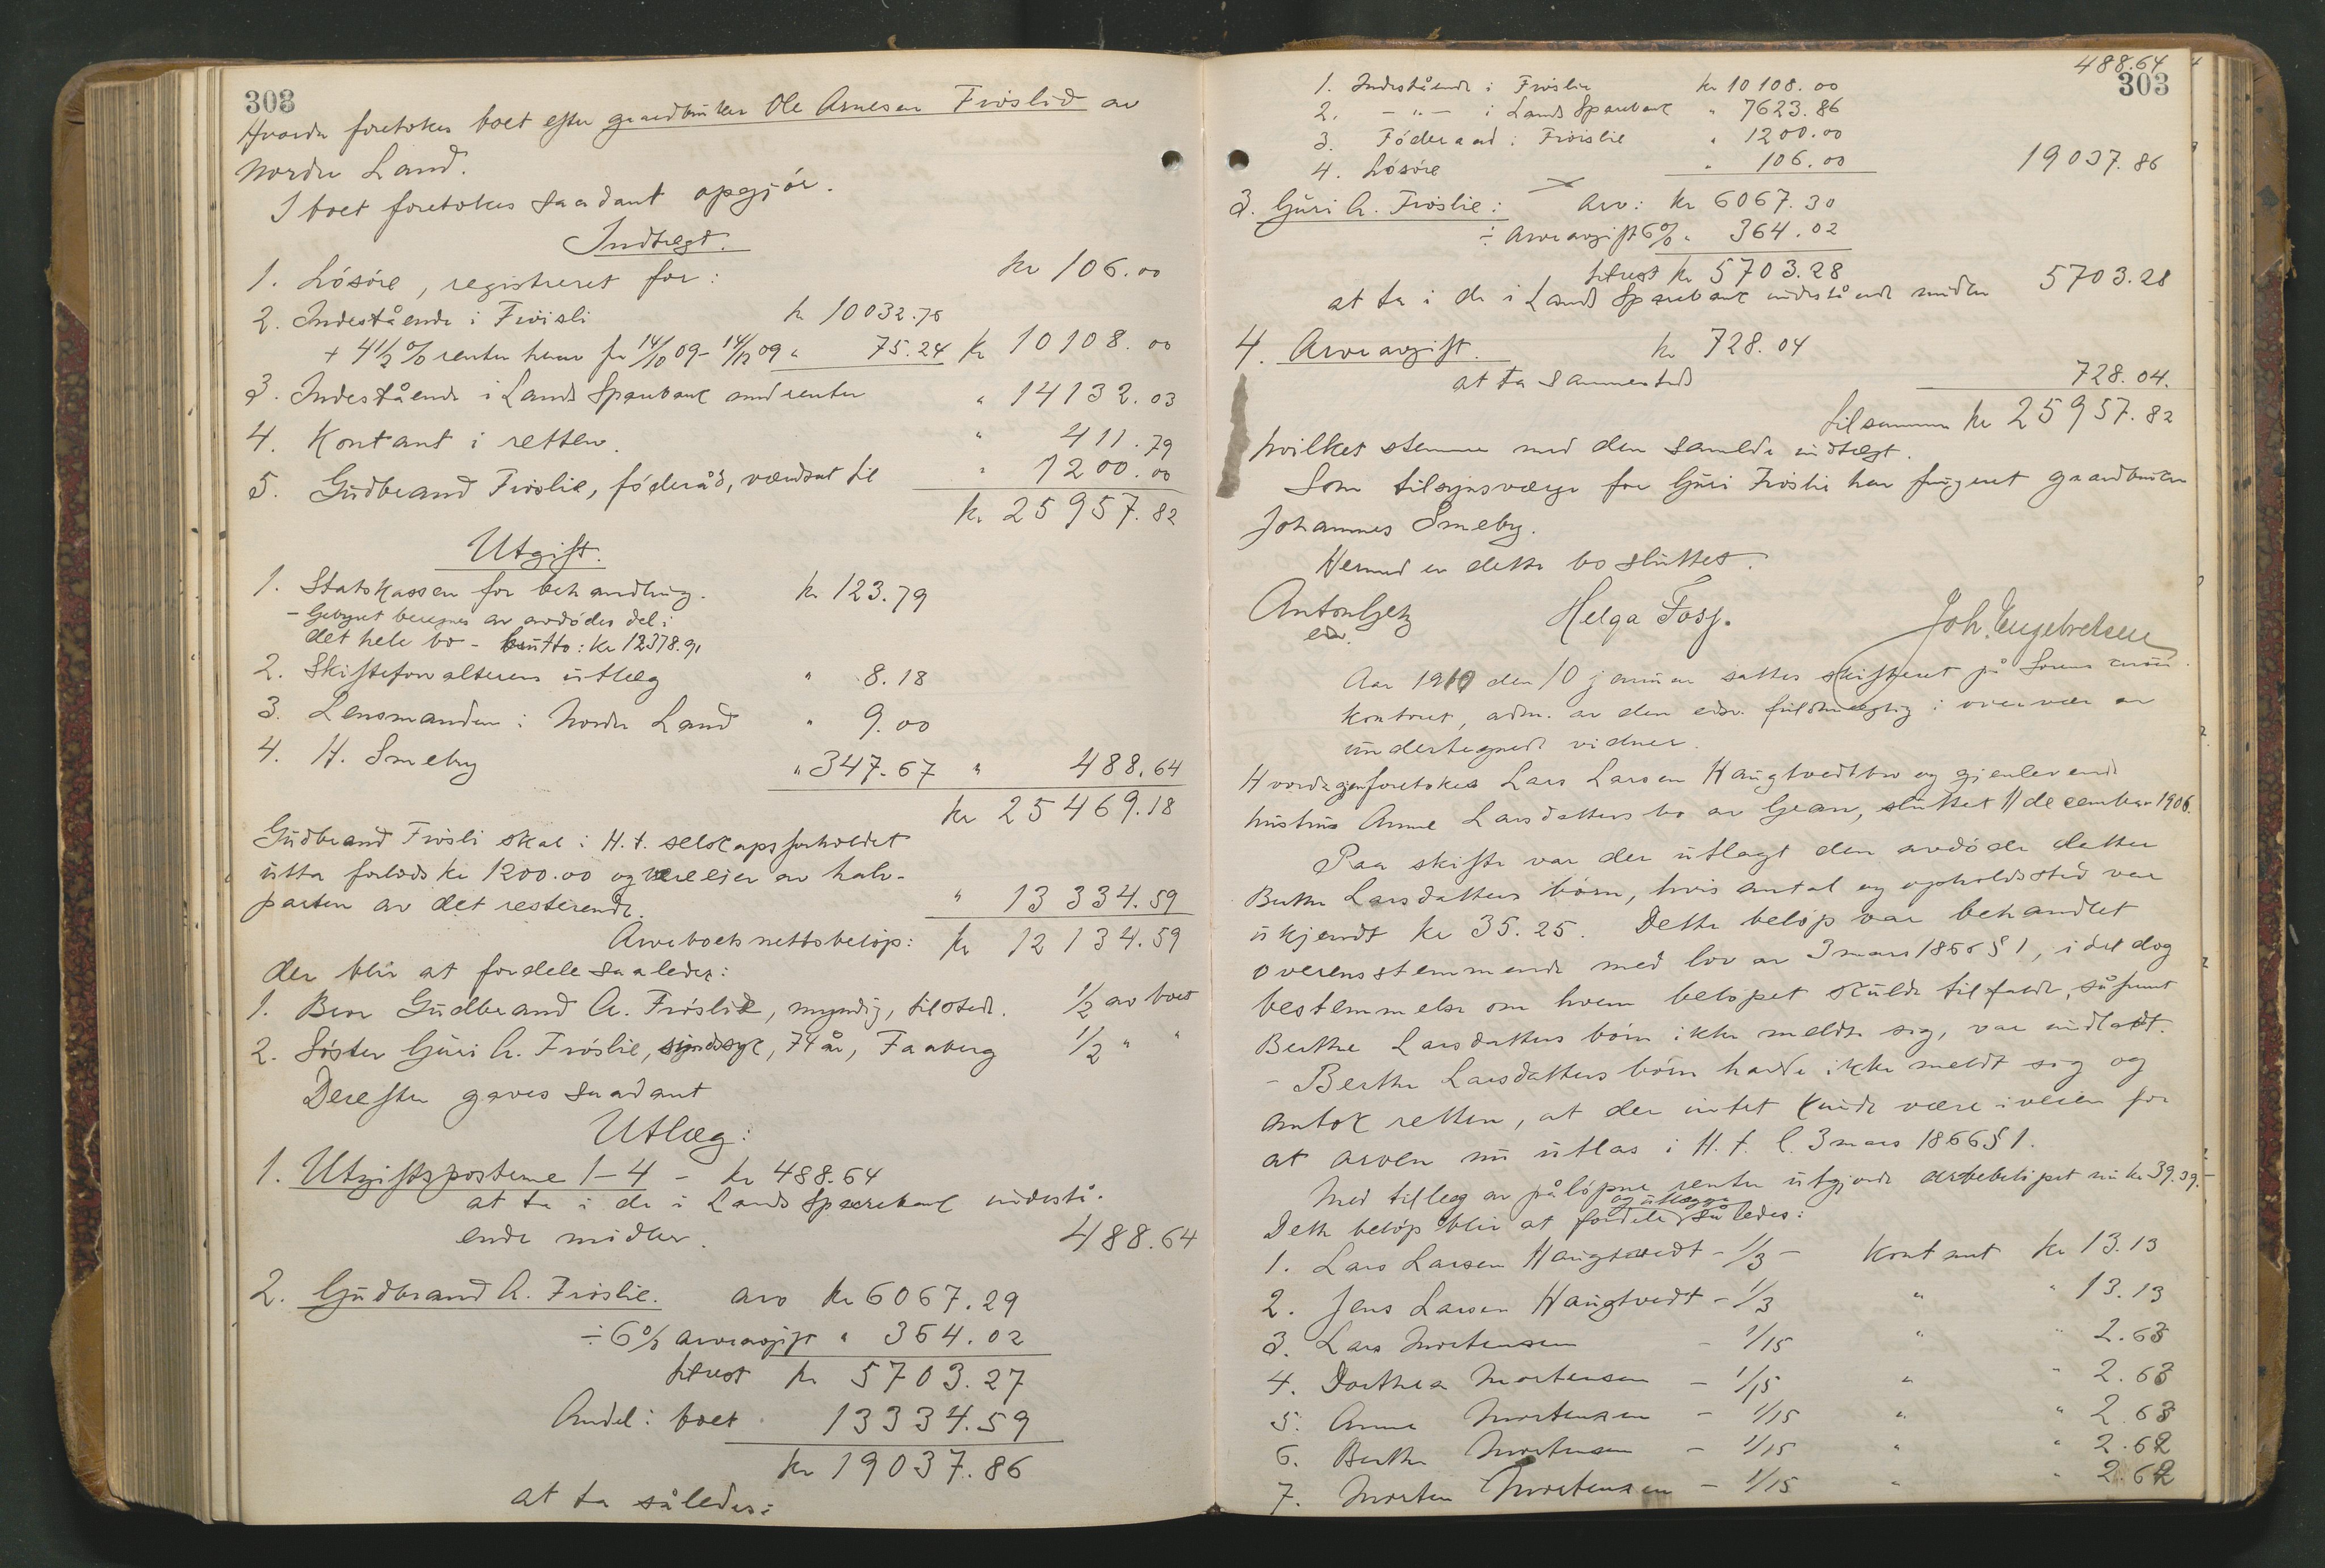 303
Hvorda foretokes boet efter gaardbruker Ole Arnesen Fröslid av
Nordre Land.
I boet foretokes saadant opgjör.
Indtægt.
1. Lösöre, registreret for: kr 106.00
2. Indestående i Fröisli kr 10032.76
+ 4 1/2 % renter herav fra 14/10 09 - 14/12 09 " 75.24 kr 10108.00
3. Indestående i Lands Sparebank med renter " 14132.03
4. Kontant i retten. " 411.79
5. Gudbrand Fröslie, föderåd, værdsat til " 1200.00
kr 25957.82
Utgift.
1. Statskassen for behandling. kr 123.79
- Gebyret beregnes av avdödes del i
det hele bo - brutto: kr 12378.91
2. Skifteforvalterens utlæg " 8.18
3. Lensmanden i Nordre Land " 9.00
4. H. Smeby " 347.67 " 488.64
kr 25469.18
Gudbrand Frösli skal i H. t. selskapsforholdet
utta forlods kr 1200.00 og være eier av halv-
parten av det resterende. " 13334.59
Arveboets nettobelöp: kr 12134.59
der blir at fordele saaledes:
1. Bror Gudbrand A. Fröslie, myndig, tilstede. 1/2 av boet
2. Söster Guri A. Fröslie, sindssyk, 74 år, Faaberg 1/2 " "
Derefter gaves saadant
Utlæg:
1. Utgiftsposterne 1-4 - kr 488.64
at ta i de i Lands Sparebank indestå-
ende midler. 488.64
2. Gudbrand A. Fröslie. arv kr 6067.29
÷ 6% arveavgift " 364.02
tilrest kr 5703.27
Andel i boet 13334.59
kr 19037.86
at ta således:
488.64
303
1. Indestående i Fröslie kr 10108.00
2. - " - i Lands Sparebank " 7623.86
3. Föderaad i Fröislie " 1200.00
4. Lösöre " 106.00 19037.86
3. Guri A. Fröslie: Arv: kr 6067.30
÷ Arveavgift 6% " 364.02
tilrest kr 5703.28
at ta i de i Lands Sparebank indestående midler 5703.28
4. Arveavgift. kr 728.04
at ta sammesteds 728.04.
tilsammen kr 25957.82
hvilket stemmer med den samlede indtægt.
Som tilsynsværge for Guri Fröslie har fungeret gaardbruker
Johannes Smeby.
Hermed er dette bo sluttet.
Anton Getz Helga Foss. Joh. Engebretsen
edsv.
Aar 1910 den 10 januar sattes skifteret på Sorenskriver
kontoret, adm. av den edsv. fuldmægtig i overvær av
undertegnede vidner.
Hvorda gjenforetokes Lars Larsen Haugtvedtbro og gjenlevende
hustru Anne Larsdatters bo av Gran, sluttet 11 december 1906.
Paa skifte var der utlagt den avdöde datter
Berthe Larsdatters börn, hvis antal og opholdssted var
ukjendt kr 35.25. Dette belöp var behandlet
overensstemmende med lov av 3 mars 1866 § 1, idet dog
bestemmelse om hvem belöpet skulde tilfalde, såfremt
Berthe Larsdatters börn ikke meldte sig, var utladt.
- Berthe Larsdatters börn hadde ikke meldt sig og
antok retten, at der intet kunde være iveien for
at arven nu utlas i H. t. l. 3 mars 1866 § 1.
Med tillæg av påløpne renter utgjorde arvebelöpet nu kr 39.39.-
og utlægge
Dette belöp blir at fordele således:
1. Lars Larsen Haugtvedt - 1/3 - Kontant kr 13.13
2. Jens Larsen Haugtvedt - 1/3 " " 13.13
3. Lars Mortensen - 1/15 " " 2.63
4. Dorthea Mortensen - 1/15 " " 2.63
5. Anne Mortensen - 1/15 " " 2.63
6. Berthe Mortensen - 1/15 " " 2.62
7. Morten Mortensen - 1/15 " " 2.62